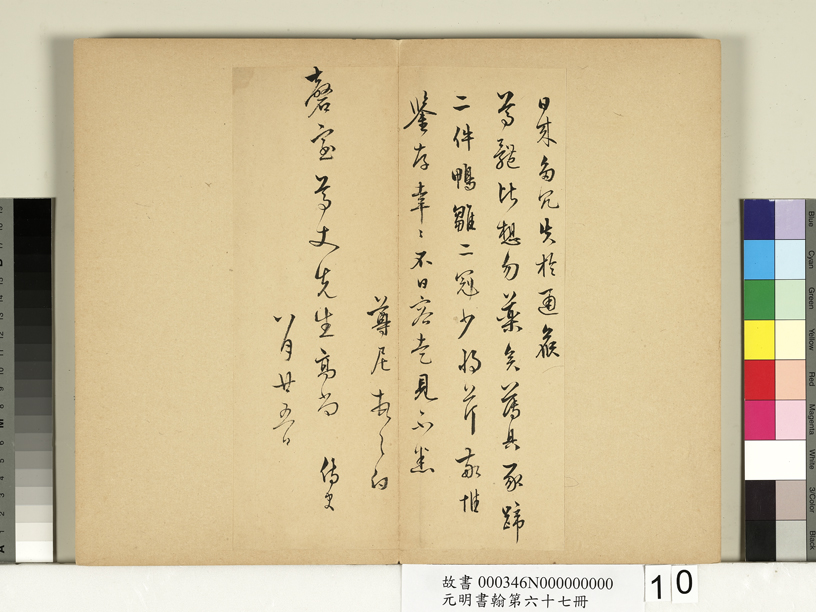 日來多冗失於通候
尊體比想勿藥矣薄具豕蹄
二件鴨雛二冠少將芹敬惟
鑒存幸〻不日容走見不悉
尊尼
磬室尊丈先生高尚 侍史
八月廿五日
故書 000346N000000000
元明書翰第六十七冊
10
Blue
Cyan
Green
Yellow
Red
Magenta
White
3/Color
Black